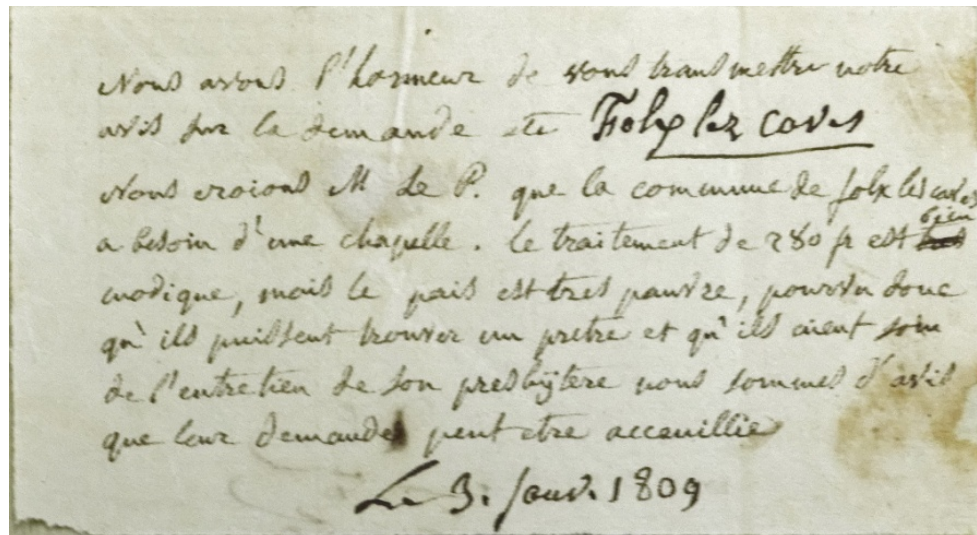 Nous avons l'honneur de vous transmettre notre
avis sur la demande de Folx lez caves
Nous croions M Le P. que la commune de folx les caves
a besoin d'une chapelle. le traitement de 280 fr est bien
modique, mais le païs est tres pauvre, pourvu donc
qu'ils puissent trouver un pretre et qu'ils aient soin
de l'entretien de son presbÿtere nous sommes d'avis
que leur demande peut etre accueillie
Le 3. Janv. 1809